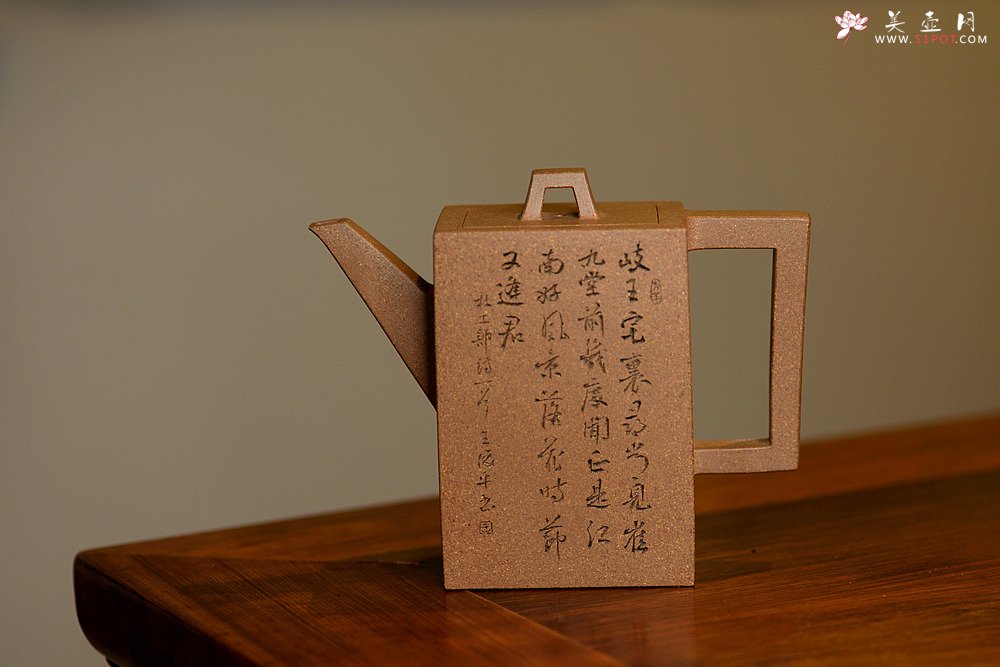 美壶网
WWW.51POT.COM
岐王宅裏尋常見崔
九堂前幾度聞正是江
南好風景落花時節
又逢君
杜工部詩一首 王